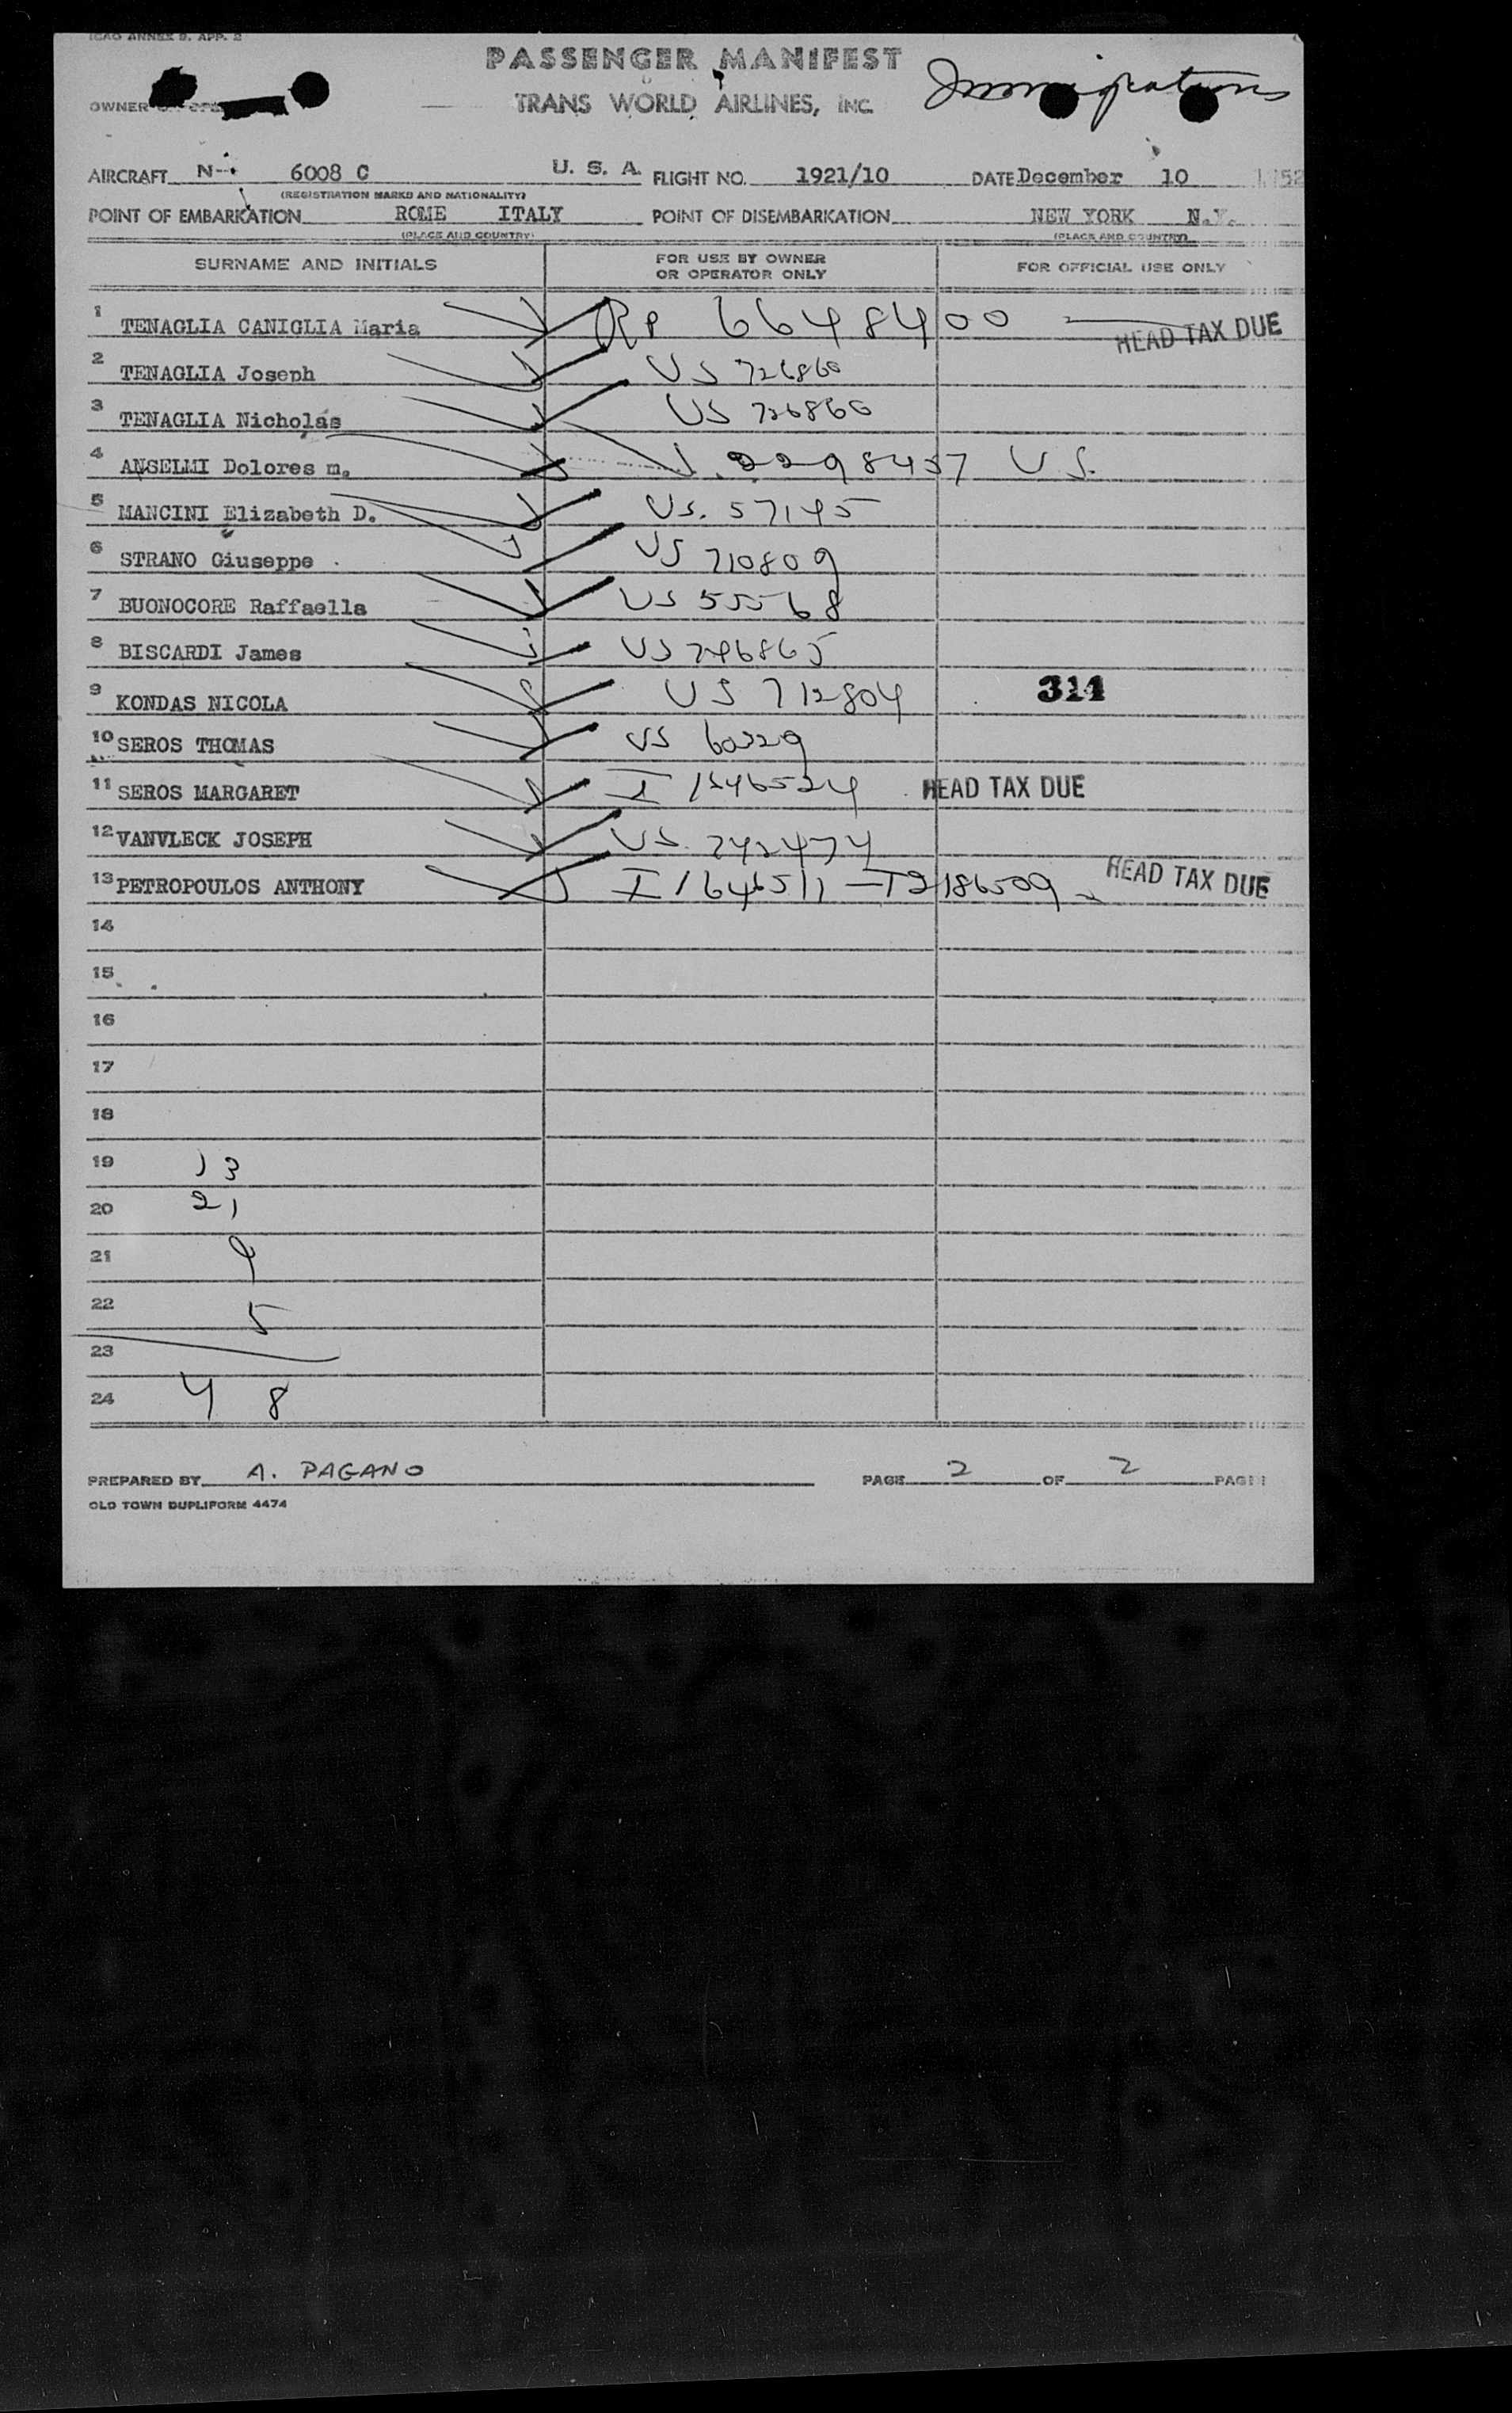 ICAO ANNEX 9. APP. 2
PASSENGER MANIFEST
Immigrations
OWNER
TRANS WORLD AIRLINES, INC.
AIRCRAFT N- 6008 C U. S. A. FLIGHT NO. 1921/10 DATE December 10 1952
(REGISTRATION MARKS AND NATIONALITY)
POINT OF EMBARKATION ROME ITALY POINT OF DISEMBARKATION NEW YORK N.Y.
(PLACE AND COUNTRY) (PLACE AND COUNTRY)
SURNAME AND INITIALS FOR USE BY OWNER OR OPERATOR ONLY FOR OFFICIAL USE ONLY
1 TENAGLIA CANIGLIA Maria RP 6648400 HEAD TAX DUE
2 TENAGLIA Joseph US 726860
3 TENAGLIA Nicholas US 726860
4 ANSELMI Dolores m. 2298457 US.
5 MANCINI Elizabeth D. US. 57145
6 STRANO Giuseppe US 710809
7 BUONOCORE Raffaella US 55568
8 BISCARDI James US 746865
9 KONDAS NICOLA US 712804 314
10 SEROS THOMAS US 60329
11 SEROS MARGARET I 1546524 HEAD TAX DUE
12 VANVLECK JOSEPH US. 742474
13 PETROPOULOS ANTHONY I 1646511 - T2186509 HEAD TAX DUE
14
15
16
17
18
19 13
20 21
21 9
22 5
23
24 48
PREPARED BY A. PAGANO PAGE 2 OF 2 PAGE
OLD TOWN DUPLIFORM 4474